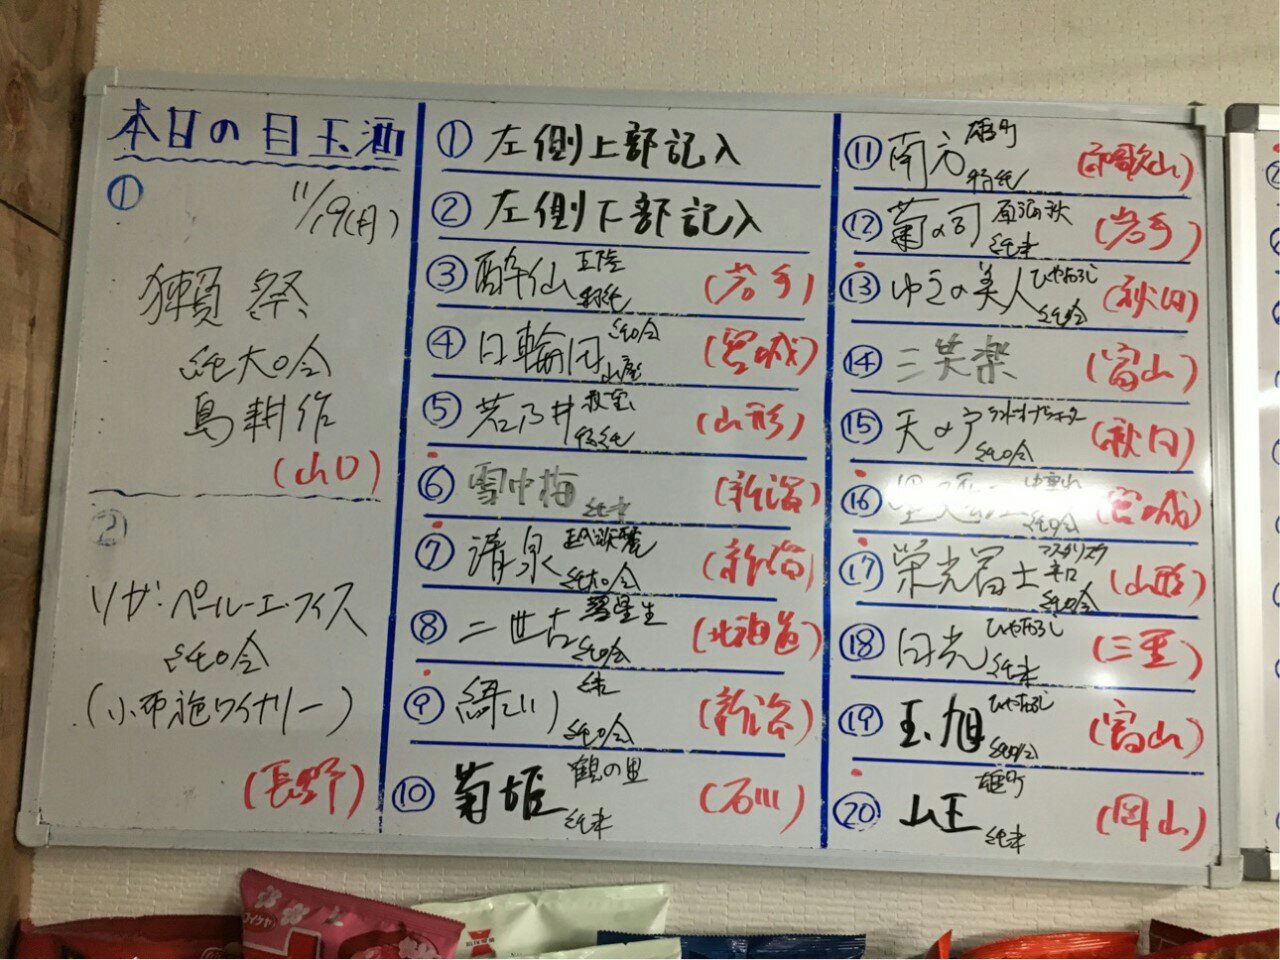 本日の目玉酒
①
11/19(月)
獺祭
純大吟
島耕作
(山口)
②
リザ・ペールーエ・フィス
純吟
(小布施ワイナリー)
(長野)
① 左側上部記入
② 左側下部記入
③ 酔仙 特純 (岩手)
④ 日輪田 純吟 山廃 (宮城)
⑤ 若乃井 特純 (山形)
⑥ 雪中梅 純米 (新潟)
⑦ 清泉 越淡麗 純大吟 (新潟)
⑧ 二世古 彗星生 純吟 (北海道)
⑨ 緑川 純吟 (新潟)
⑩ 菊姫 鶴の里 純米 (石川)
⑪ 南方 雄町 特純 (和歌山)
⑫ 菊の司 純米 (岩手)
⑬ ゆきの美人 ひやおろし 純吟 (秋田)
⑭ 三笑楽 (富山)
⑮ 天の戸 ランドオブウォーター 純吟 (秋田)
⑯ 純吟 (宮城)
⑰ 栄光冨士 辛口 純吟 (山形)
⑱ 日光 ひやおろし 純米 (三重)
⑲ 玉旭 ひやおろし 純吟 (富山)
⑳ 山王 雄町 純米 (岡山)